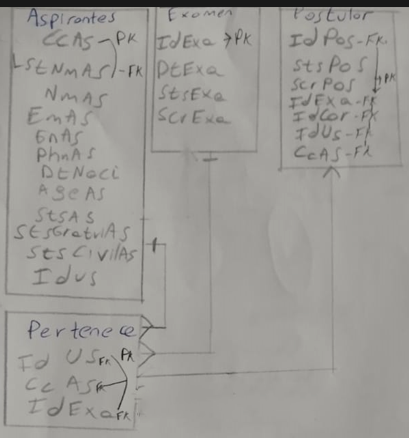 Aspirantes
CcAs - PK
LStNmAS - FK
NmAS
EmAs
GnAs
PhnAS
DtNaci
AgeAs
StsAS
StsGratuiAs
Sts CivilAs
Idus
Examen
IdExa → PK
DtExa
StsExa
ScrExa
Postular
IdPos-FK
StsPoS
ScrPos PK
IdExa-FK
IdCor-FK
IdUs-FK
CcAS-FK
Pertenece
Id US FK PK
Cc AS FK
IdExa FK